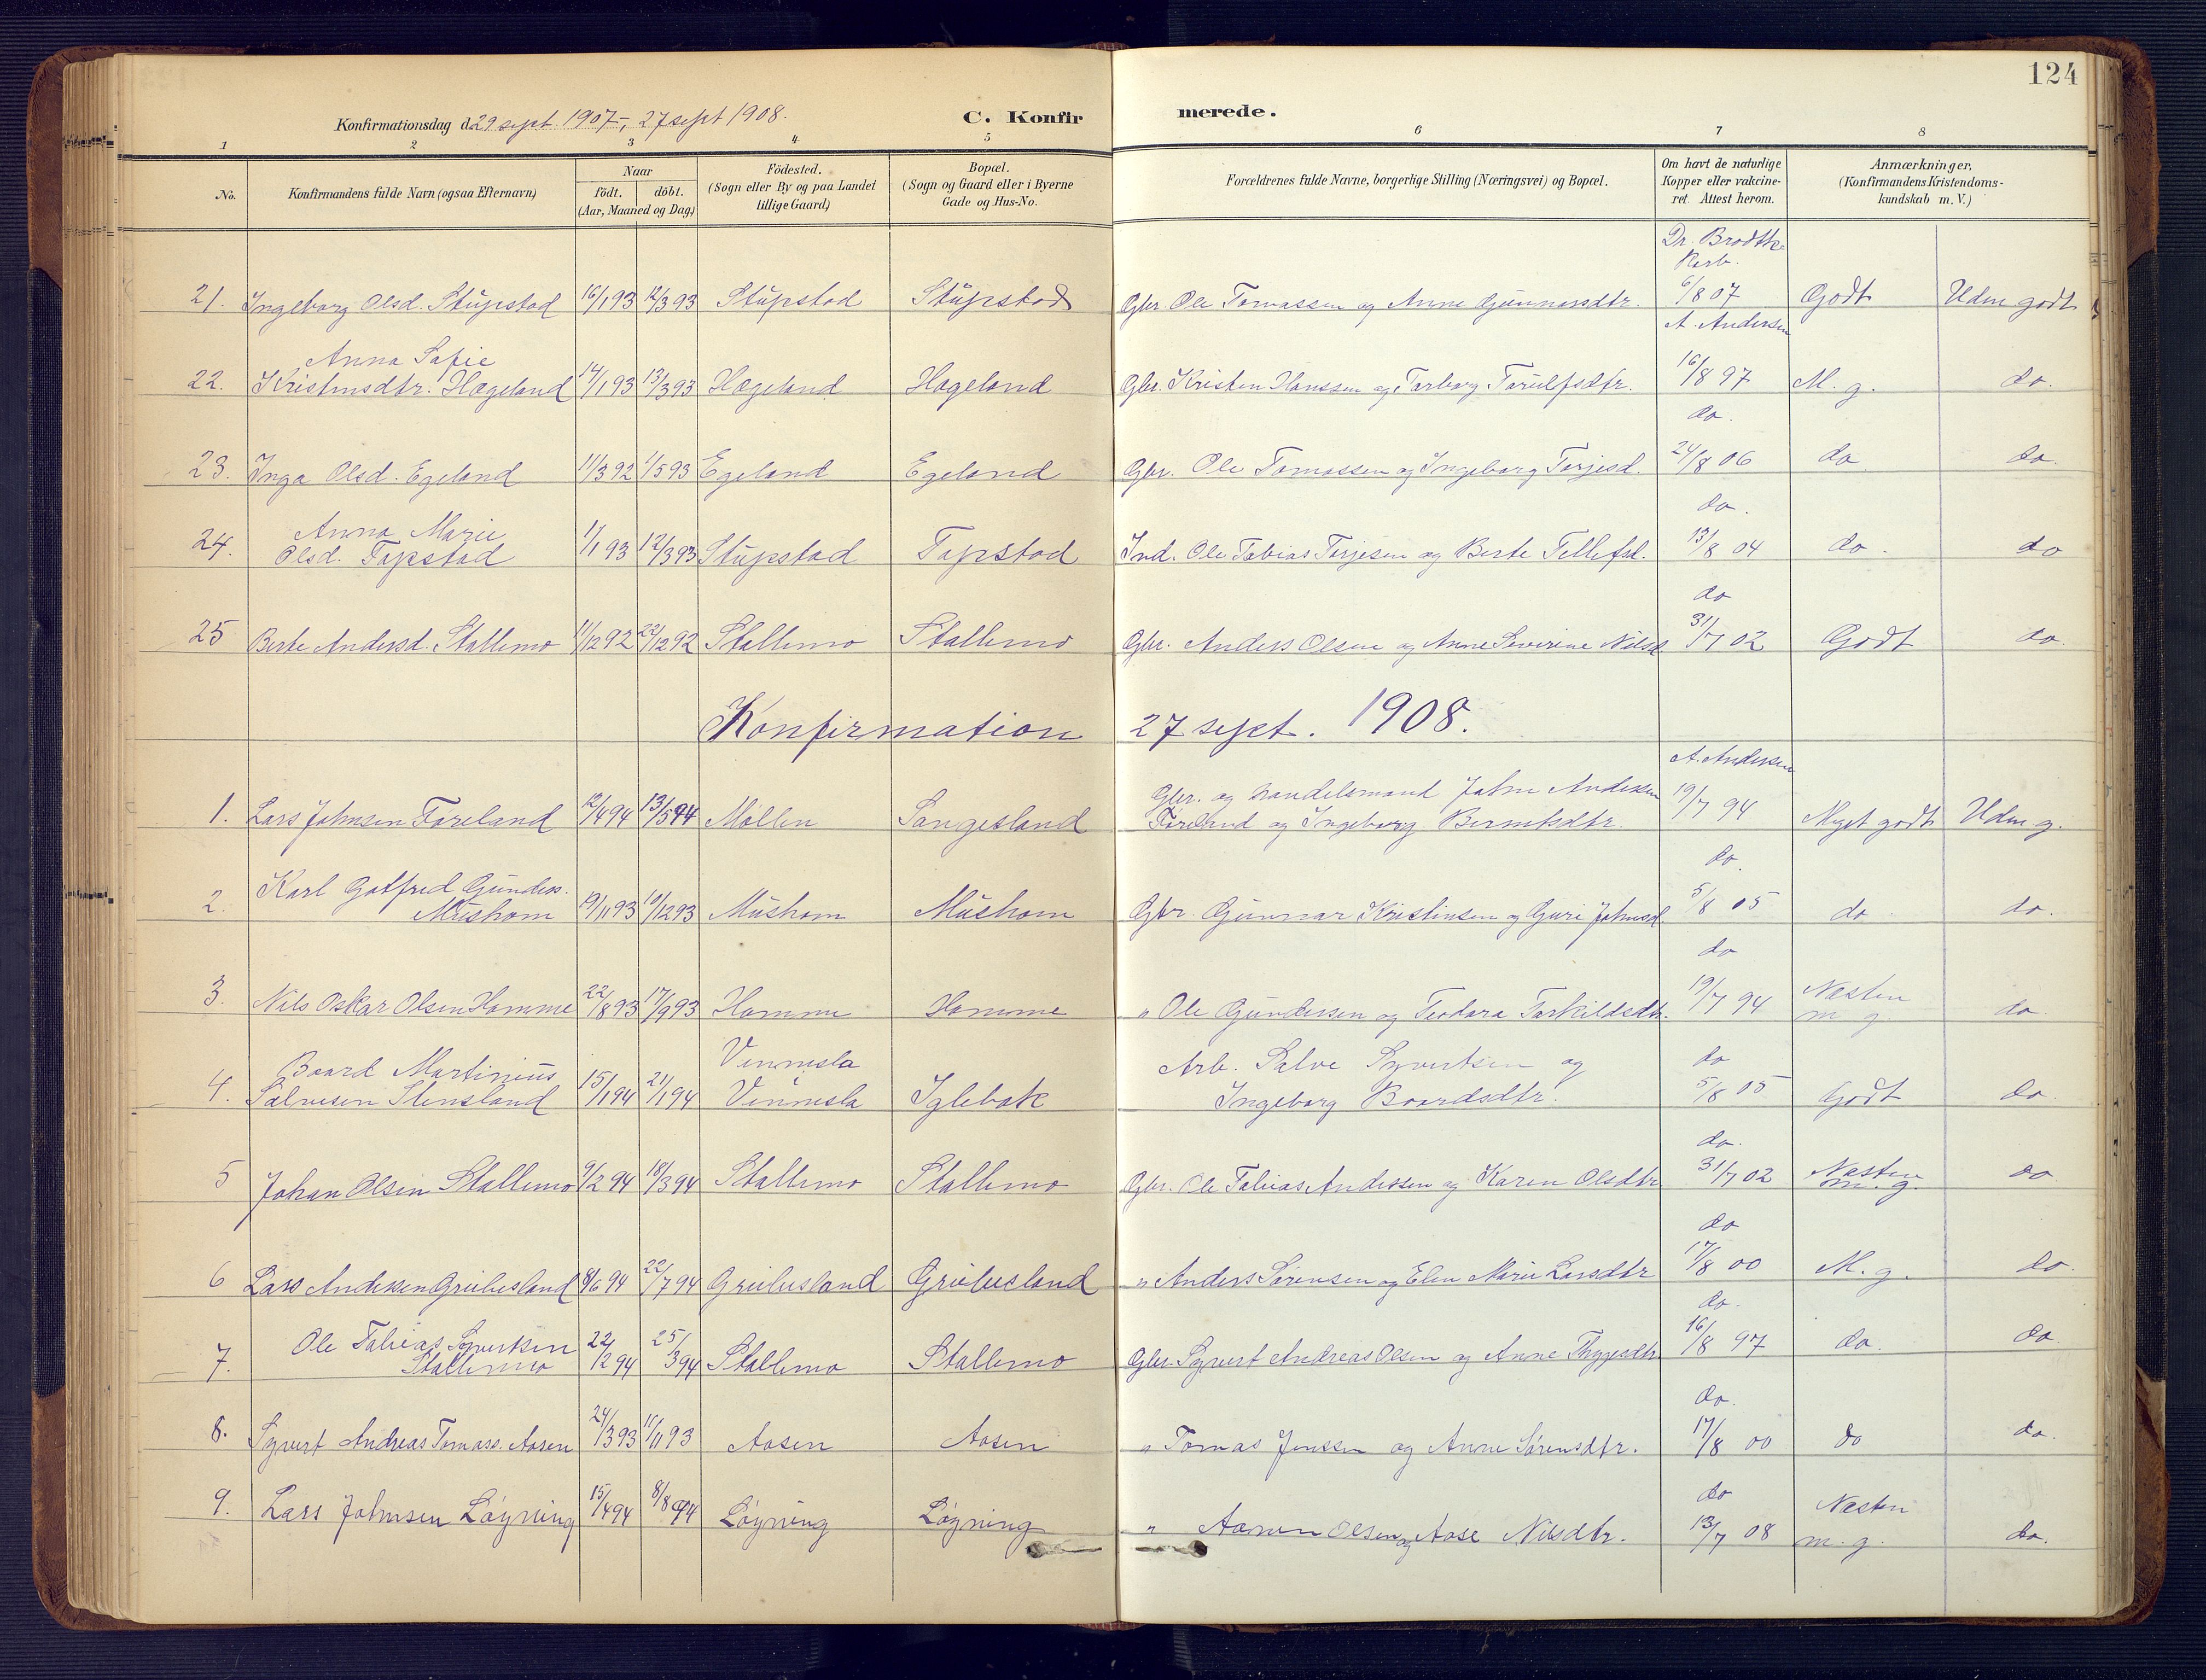 124
Konfirmationsdag d. 29 sept. 1907, 27 sept 1908.
C. Konfirmerede.
1 2 3 4 5 6 7 8
No.
Konfirmandens fulde Navn (ogsaa Efternavn)
Naar
födt. döbt.
(Aar, Maaned og Dag)
Födested.
(Sogn eller By og paa Landet
tillige Gaard)
Bopæl.
(Sogn og Gaard eller i Byerne
Gade og Hus-No.
Forældrenes fulde Navne, borgerlige Stilling (Næringsvei) og Bopæl.
Om havt de naturlige
Kopper eller vakcine-
ret. Attest herom.
Anmærkninger,
(Konfirmandens Kristendoms-
kundskab m. V.)
Dr. Brodtk
Korb.
21. Ingeborg Olsd. Stüpstad 16/1 93 12/3 93 Stüpstad Stüpstad Gbr. Ole Tomassen og Anne Gunnarsdtr. 6/8 07 Godt Udm godt
A. Andersen
Anna Sofie
22. Kristensdtr. Hægeland 14/1 93 13/3 93 Hægeland Hægeland Gbr. Kristen Hanssen og Torborg Torülfsdtr. 16/8 97 M. g. do.
do.
23. Inga Olsd. Egeland 11/3 92 1/5 93 Egeland Egeland Gbr. Ole Tomassen og Ingeborg Torjesd. 24/8 06 do do.
do.
Anna Marie
24. Olsd. Topstad 1/1 93 12/3 93 Stüpstad Topstad Ind. Ole Tobias Torjesen og Berte Tellefsd. 13/8 04 do. do
do
25 Berte Andersd. Stallemo 11/12 92 22/12 92 Stallemo Stallemo Gbr. Anders Olsen og Anne Severine Nilsd. 31/7 02 Godt do.
Konfirmation 27 sept. 1908.
A. Andersen
Gbr. og Handelsmand John Andersen
1. Lars Johnsen Føreland 12/4 94 13/5 94 Mollen Sangesland Føreland og Ingeborg Berntsdtr. 19/7 94 Meget godt Udm g.
do.
Karl Gotfred Gunders.
2. Müshom 19/11 93 10/12 93 Müshom Müshom Gbr. Gunnar Kristensen og Guri Johnsd. 5/8 05 do do.
do
3. Nils Oskar Olsen Homme 22/8 93 17/9 93 Homme Homme " Ole Gundersen og Teodora Torkildsdtr. 19/7 94 Næsten
m g. do
Boord Martinius Vennesla Arb. Salve Syvertsen og do
4. Salvesen Stensland 15/1 94 21/1 94 Vennesla Iglebæk Ingeborg Boordsdtr. 5/8 05 Godt do
do.
5 Johan Olsen Stallemo 9/2 94 18/3 94 Stallemo Stallemo Gbr. Ole Tobias Andersen og Karen Olsdtr 31/7 02 Næsten
m. g. do
do
6 Lars Andersen Grübesland 8/6 94 22/7 94 Grübesland Grübesland " Anders Sørensen og Elen Marie Larsdtr 17/8 00 M. g. do.
do.
Ole Tobias Syvertsen
7. Stallemo 22/2 94 25/3 94 Stallemo Stallemo Gbr. Syvert Andreas Olsen og Anne Thygesdtr 16/8 97 do. do
do.
8. Syvert Andreas Tomass. Aasen 24/3 93 11/11 93 Aasen Aasen " Tomas Jenssen og Anne Sørensdtr. 17/8 00 do do.
do
9. Lars Johnsen Løyning 15/4 94 8/8 94 Løyning Løyning " Aanen Olsen og Aase Nilsdtr. 13/7 08 Næsten
m. g. do.